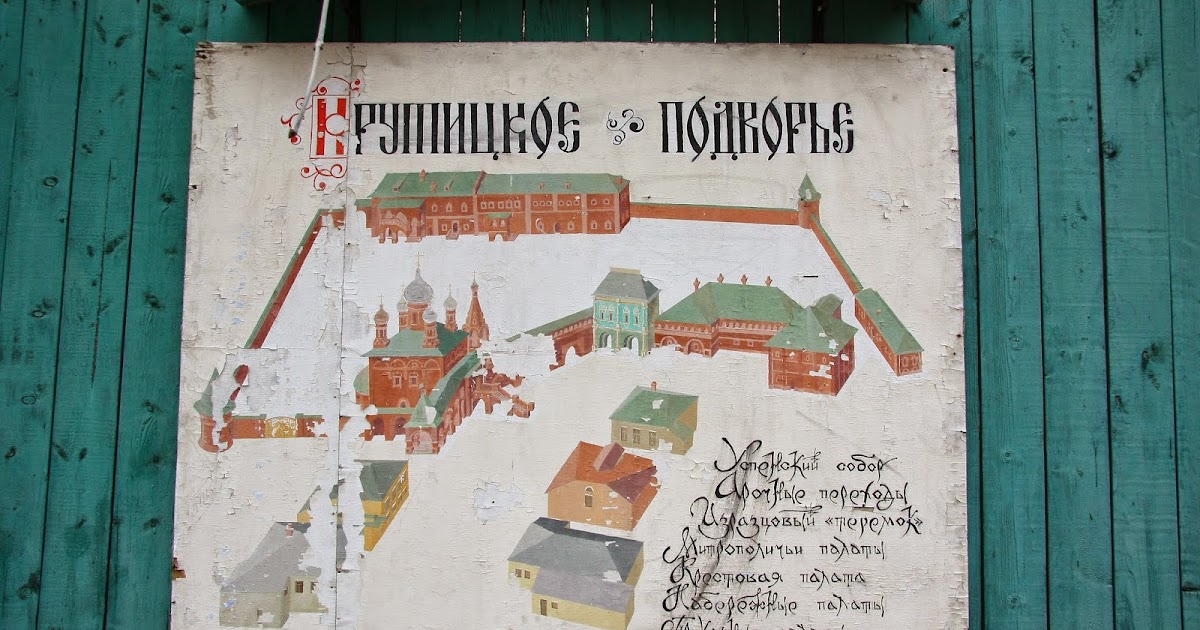 Крутицкое подворье
Успенский собор
Арочные переходы
Изразцовый «теремок»
Митрополичьи палаты
Крестовая палата
Набережные палаты